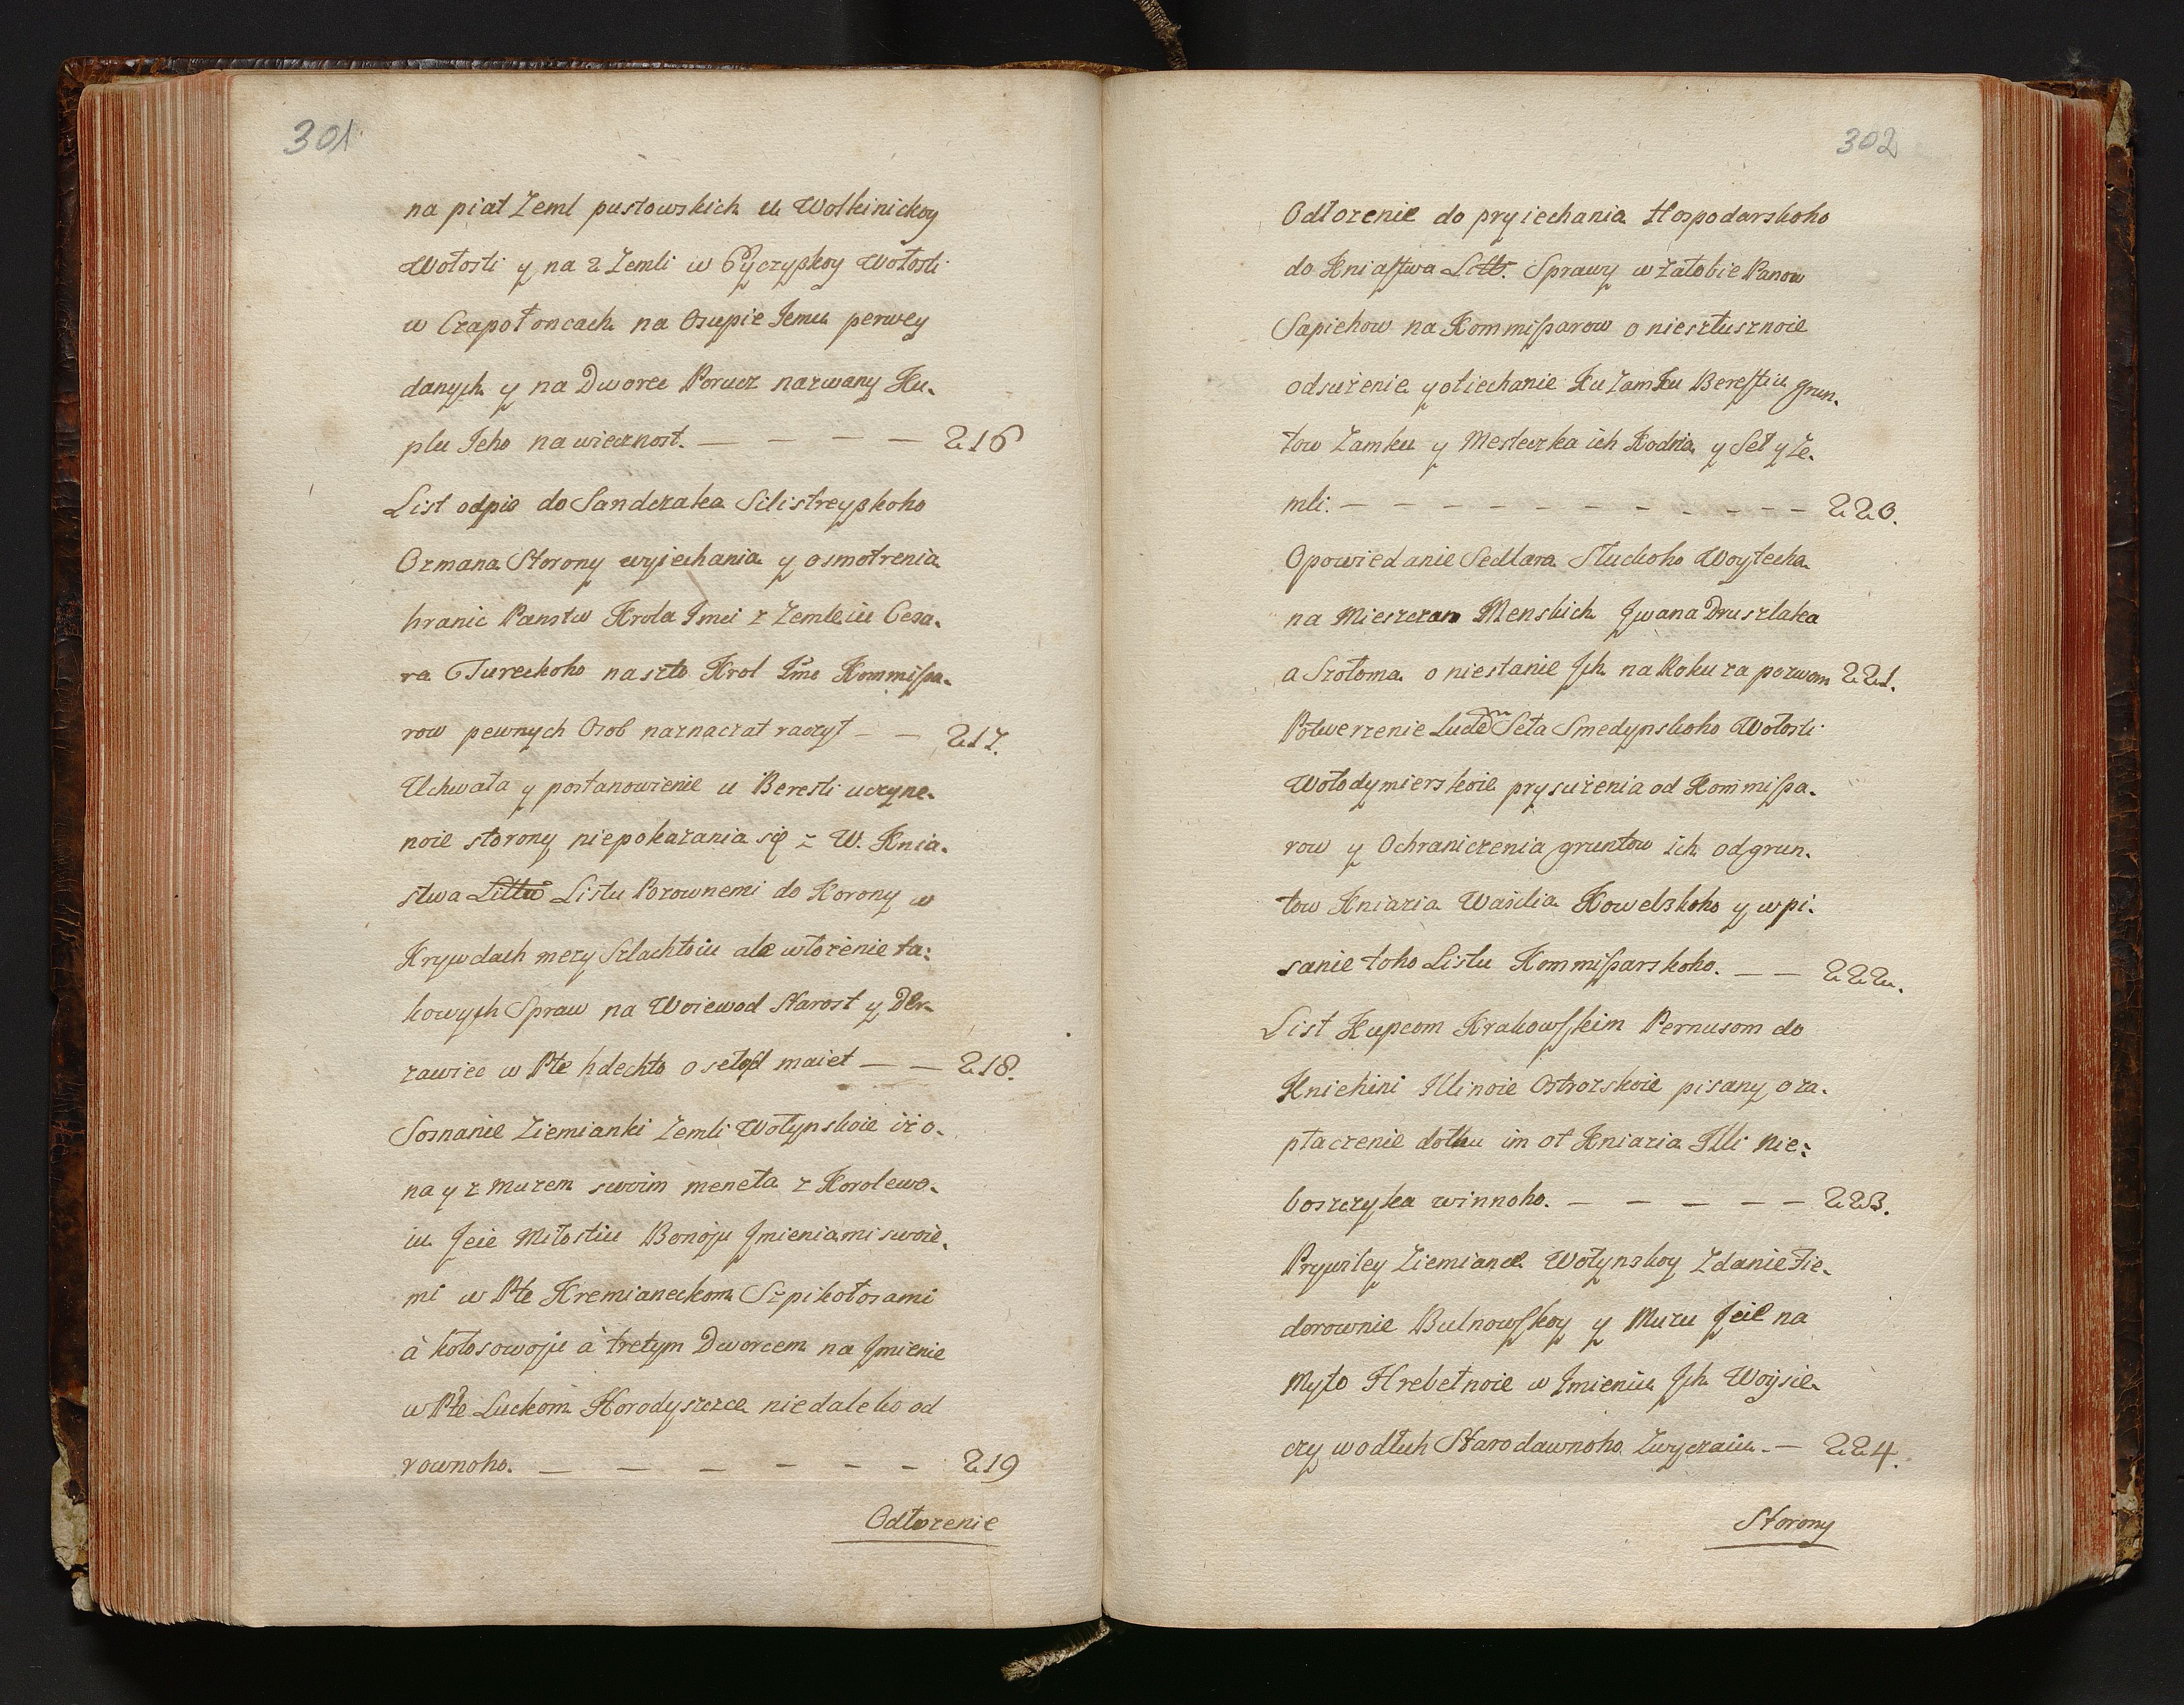 301
na piat Zeml pustowskich u Wolkinickoy
Wołosti y na 2 Zemli w Pyczyskoy Wołosti
w Czapołoncach na Osupie Jemu perwey
danych y na Dworec Porucz nazwany Ku-
plu Jeho na wiecznost. — — — — 216
List odpis do Sandczaka Silistreyskoho
Ozmana Storony wyjechania y osmotrenia
hranic Panstw Krola Jmci z Zemleiu Cesa-
ra Tureckoho naszto Krol Jmc Kommissa-
row pewnych Osob naznaczat raczyt — — 217.
Uchwała y postanowienie u Beresti uczyne-
noie storony niepokazania się z W. Knia-
stwa Littw Listu Pozownemi do Korony w
Krywdach mezy Szlachtoiu ale włożenie ta-
kowych Spraw na Woiewod Starost y Der-
zawiec w Pte hdechto osełost maiet — — 218.
Soznanie Ziemianki Zemli Wołynskoie iż o-
na y z Muzem swoim meneła z Korolewo-
iu Jeie Miłostiu Bonoju Jmieniami swoie-
mi w Pte Kremianeckom Szpikołosami
à kołosowoju à tretym Dworcem na Jmienie
w Pte Luckom Horodyszcza niedaleko od
rownoho. — — — — — — 219
Odłozenie
302
Odłozenie do pryiechania Hospodarskoho
do Kniastwa Litt. Sprawy w Załobie Panow
Sapiehow na Kommissarow o niesztusznoie
odsużenie y otiechanie Ku Zamku Berestiu grun-
tow Zamku y Mesteczka ich Kodnia y Seł y Ze-
mli. — — — — — — — — — 220.
Opowiedanie Sedlara Słuckoho Woytecha
na Mieszczan Menskich Jwana Druszlaka
a Szołoma o niestanie Jch na Roku za pozwom 221.
Potwerzenie Ludem Seła Smedynskoho Wołosti
Wołodymierskoie prysużenia od Kommissa-
row y Ochraniczenia gruntow ich od grun-
tow Kniazia Wasilia Kowelskoho y wpi-
sanie toho Listu Kommissarskoho. — — 222.
List Kupcom Krakowskim Pernusom do
Kniehini Illinoie Ostrozskoie pisany o za-
płaczenie dołhu im ot Kniazia Illi nie-
boszczyka winnoho. — — — — — 223.
Prywiley Ziemiance Wołynskoy Zdanie Fie-
dorownie Bulnowskoy y Muzu Jeie na
Myto Hrebetnoie w Jmieniu Jch Woysie-
czy wodłuh Starodawnoho Zwyczaiu. — 224.
Storony